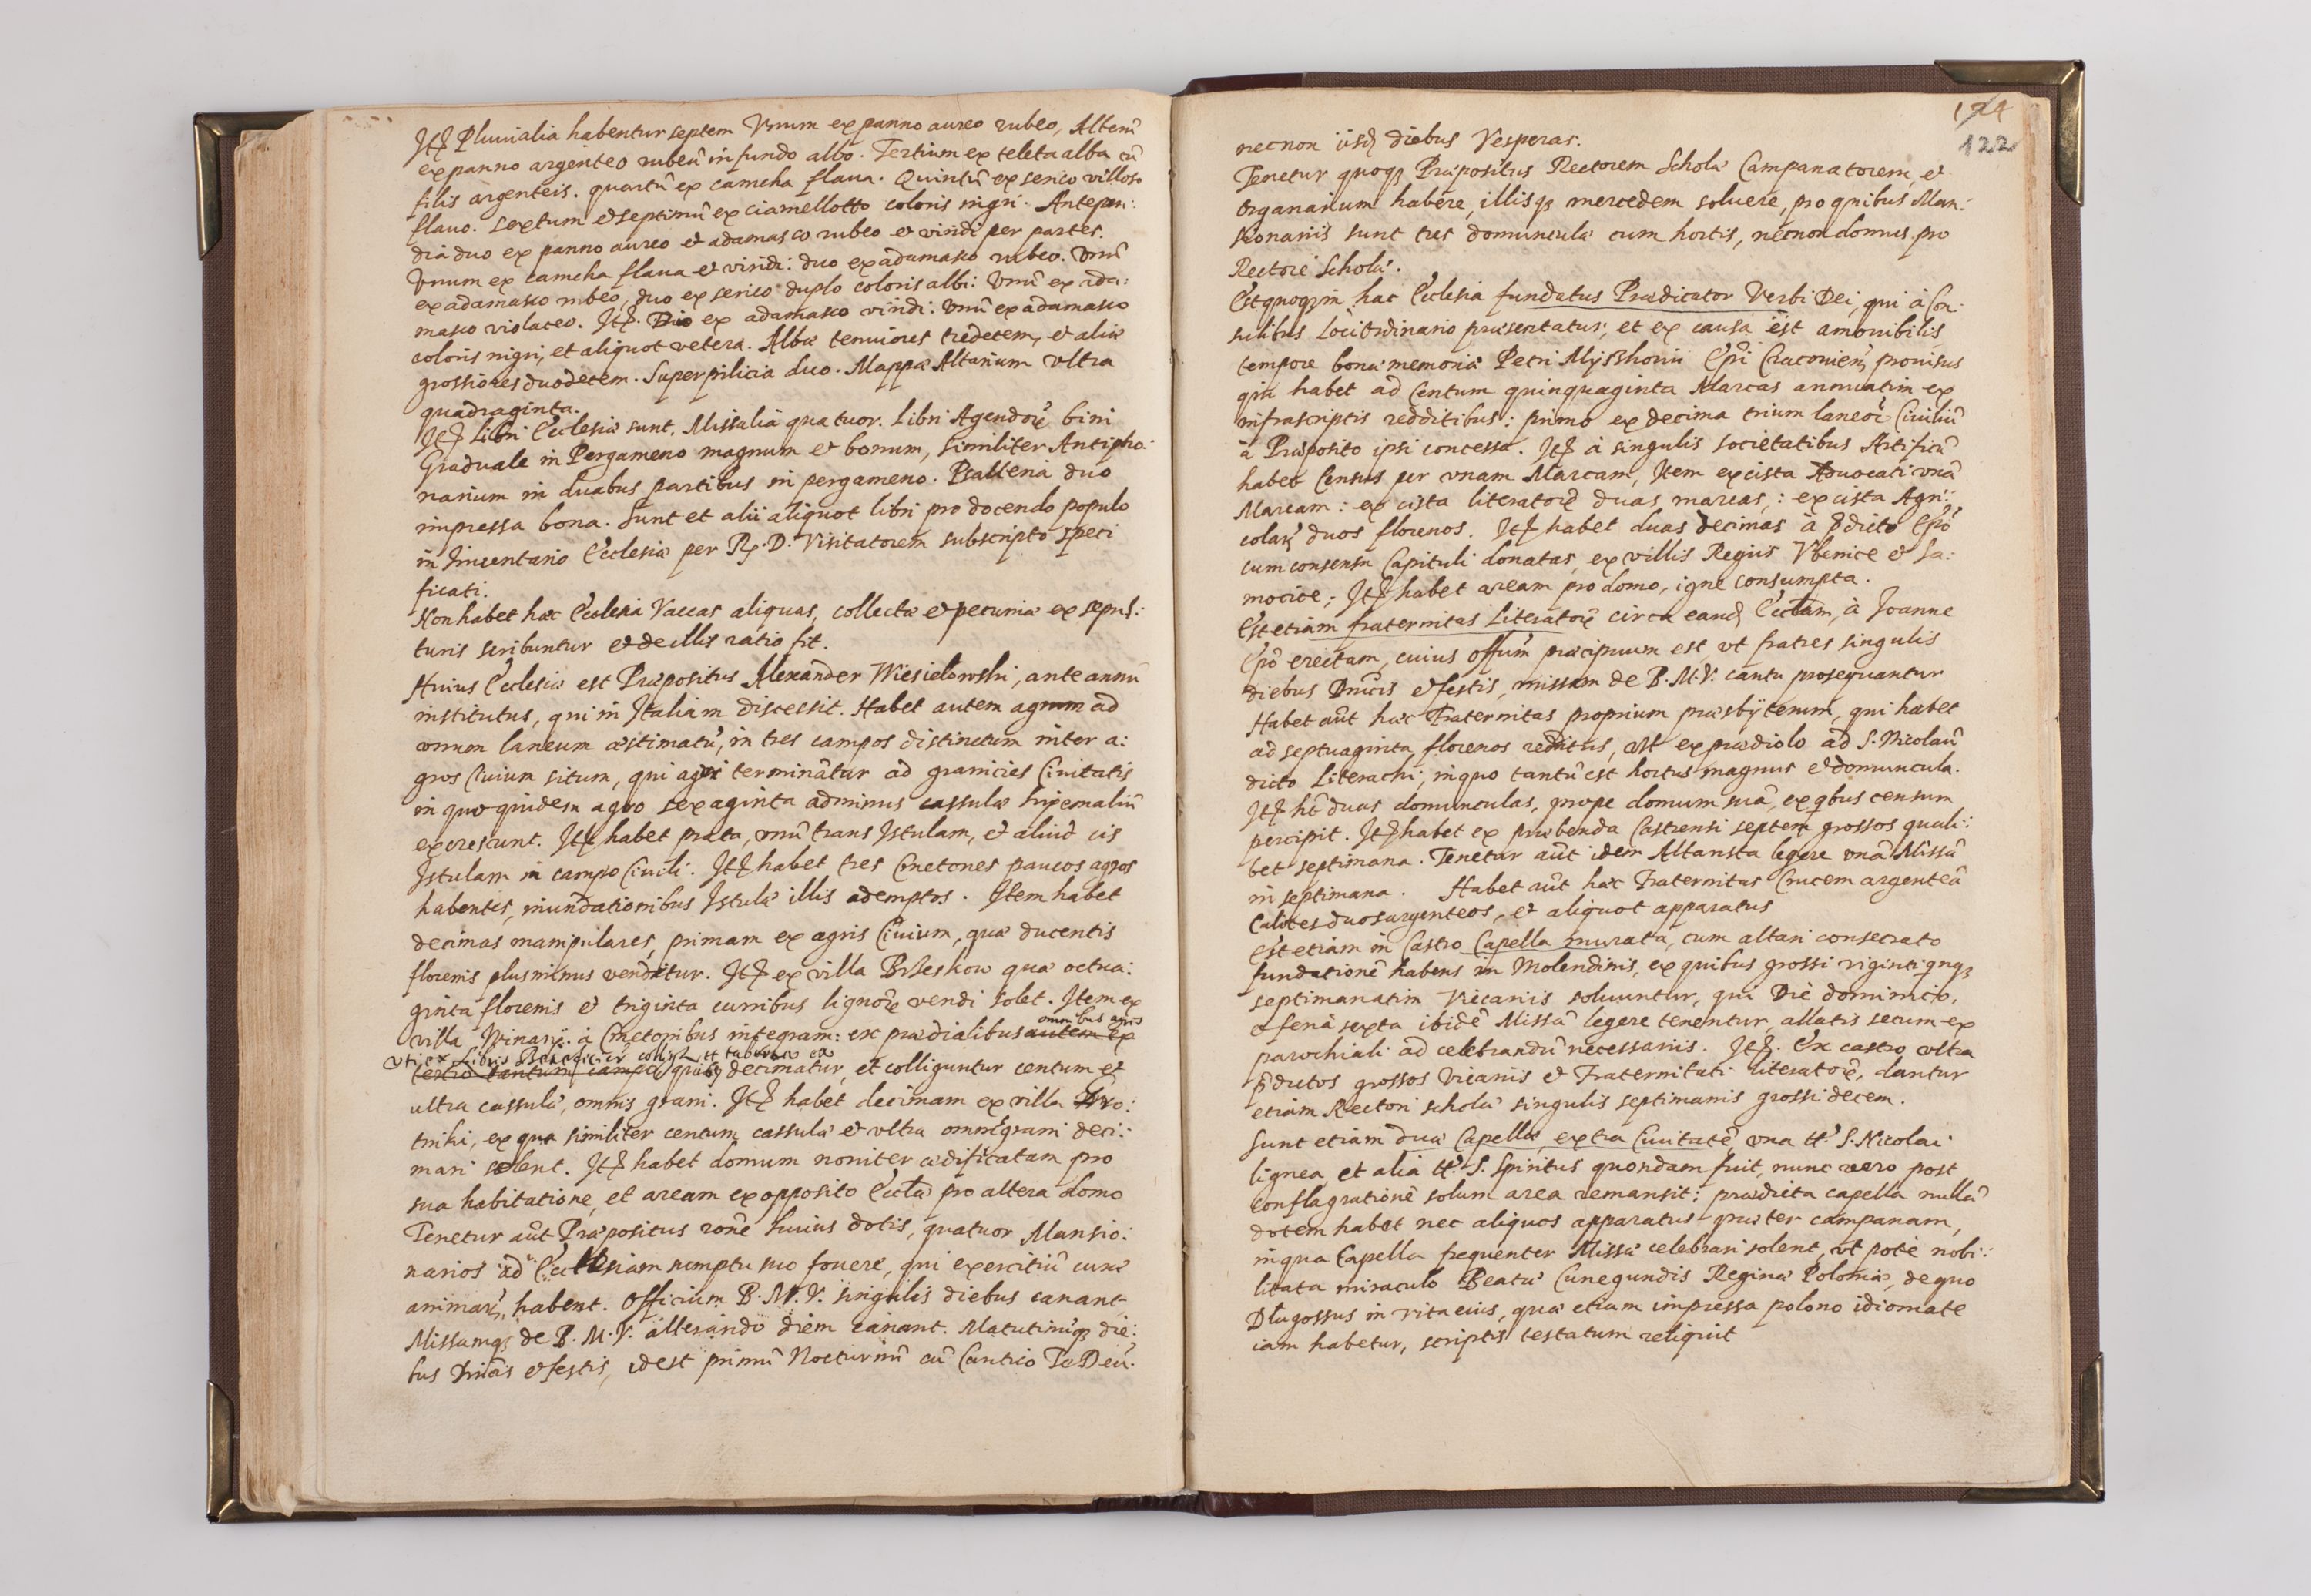 Itẽ Pluuialia habentur septem Vnum ex panno aureo rubeo, Alterũ
ex panno argenteo rubeũ in fundo albo. Tertium ex teleta alba cũ
filis argenteis. quartũ ex camcha flaua. Quintũ ex serico villoso
flauo. sextum et septimũ ex ciamellotto coloris nigri. Antepen:
dia duo ex panno aureo et adamasco rubeo et viridi per partes.
Vnum ex camcha flaua et viridi: duo ex adamasco rubeo. Vnũ
ex adamasco rubeo, duo ex serico duplo coloris albi: Vnũ ex ada:
masco violaceo. Itẽ. Duo ex adamasco viridi: Vnũ ex adamasco
coloris nigri, et aliquot vetera. Albæ tenuiores tredecem, et aliæ
grossiores duodecem. Superpilicia duo. Mappæ Altarium vltra
quadraginta.
Itẽ Libri Ecclesiæ sunt. Missalia quatuor. Libri Agendorũ bini
Graduale in Pergameno magnum et bonum, similiter Antipho:
narium in duabus partibus in pergameno. Psalteria duo
impressa bona. Sunt et alii aliquot libri pro docendo populo
in Inuentario Ecclesiæ per R. D. Visitatorem subscripto speci
ficati.
Non habet hæc Ecclesia Vaccas aliquas, collectæ et pecuniæ ex sepul:
turis scribuntur et de illis ratio fit.
Huius Ecclesiæ est Præpositus Alexander Wiesiełowski, ante annũ
institutus, qui in Italiam discessit. Habet autem agrum ad
vnum laneum æstimatũ, in tres campos distinctum inter a:
gros Ciuium situm, qui agri terminatur ad granicies Ciuitatis
in quo quidem agro sexaginta adminus cassulæ hiemaliũ
excrescunt. Itẽ habet prata, vnũ trans Istulam, et aliud cis
Istulam in campo Ciuili. Itẽ habet tres Cmetones paucos agros
habentes, inundationibus Istulæ illis ademptos. Item habet
decimas manipulares, primam ex agris Ciuium, quæ ducentis
florenis plus minus venditur. Itẽ ex villa Brzeskow quæ octua:
ginta florenis et triginta curribus lignorũ vendi solet. Item ex
villa Winary. à Cmetonibus integram: ex prædialibus autem ex
omnibus agris
vti ex Libris
tertio tantum campo decimatur, et colliguntur centum et
ultra cassulæ, omnis grani. Itẽ habet decimam ex villa
triki, ex qua similiter centum cassulæ et vltra omnis grani deci:
mari solent. Itẽ habet domum nouiter ædificatam pro
sua habitatione, et aream ex opposito Eccłæ pro altera domo
Tenetur aũt Præpositus rõne huius dotis, quatuor Mansio:
narios ad Ecclesiam sumptu suo fouere, qui exercitiũ curæ
animarũ habent. Officium B. M. V. singulis diebus canant
Missamqȝ de B. M. V. alterando diem canant. Matutinũqȝ die:
bus Dnicis et festis, idest primũ Nocturnũ cũ Cantico Te Deũ.
124
122
necnon iisdẽ diebus Vesperas.
Tenetur quoqȝ Præpositus Rectorem Scholæ Campanatorem, et
Organarium habere, illisqȝ mercedem soluere, pro quibus Man:
sionariis sunt tres domunculæ cum hortis, necnon domus pro
Rectore Scholæ.
Est quoqȝ in hac Ecclesia fundatus Prædicator Verbi Dei, qui à Con:
sulibus Loci Ordinario præsentatur, et ex causa est amouibilis
tempore bonæ memoriæ Petri Myszkowii Epi Cracouień prouisus
qui habet ad Centum quinquaginta Marcas annuatim ex
infrascriptis redditibus: primo ex decima trium laneorũ Ciuiliũ
à Præposito ipsi concessa. Itẽ à singulis societatibus Artificũ
habet Census per vnam Marcam, Item ex cista Aduocati vnã
Marcam: ex cista literatorũ duas marcas,: ex cista Agri:
colarũ duos florenos. Itẽ habet duas decimas à p̃dicto Epõ
cum consensu Capituli donatas, ex villis Regiis Vienice et Sa:
mocice; Itẽ habet aream pro domo, igne consumpta.
Est etiam fraternitas Literatorũ circa eandẽ Eccłam, à Joanne
Epõ erectam, cuius Offũm præcipuum est vt fratres singulis
diebus Dnicis et festis, missam de B. M. V. cantu prosequantur
Habet aũt hæc Fraternitas proprium præsbyterum, qui habet
ad septuaginta florenos redditus, est ex prædiolo ad S. Nicolaũ
dicto Literacki, in quo tantũ est hortus magnus et domuncula.
Itẽ hẽt duas domunculas, prope domum suã, ex qbus censum
percipit. Itẽ habet ex præbenda Castrensi septem grossos quali:
bet septimana. Tenetur aũt idem Altarista legere vnã Missã
in septimana. Habet aũt hæc Fraternitas Crucem argenteã
Calices duos argenteos, et aliquot apparatus
Est etiam in Castro Capella murata, cum altari consecrato
fundationẽ habens in Molendinis, ex quibus grossi viginti qnqȝ
septimanatim Vicariis soluuntur, qui Die dominico,
et feria sexta ibidẽ Missã legere tenentur, allatis secum ex
parochiali ad celebrandũ necessariis. Itẽ. Ex castro vltra
p̃dictos grossos Vicariis et Fraternitati literatorũ, dantur
etiam Rectori scholæ singulis septimanis grossi decem.
Sunt etiam duæ Capellæ extra Ciuitatẽ vna tt. S. Nicolai
lignea, et alia tt. S. Spiritus quondam fuit, nunc vero post
Conflagrationẽ solum area remansit: prædicta capella nullã
dotem habet nec aliquos apparatus præter campanam,
in qua Capella frequenter Missæ celebrari solent, vt pote nobi:
litata miraculo Beatæ Cunegundis Reginæ Poloniæ, de quo
Długossus in vita eius, quæ etiam impressa polono idiomate
iam habetur, scriptis testatum reliquit